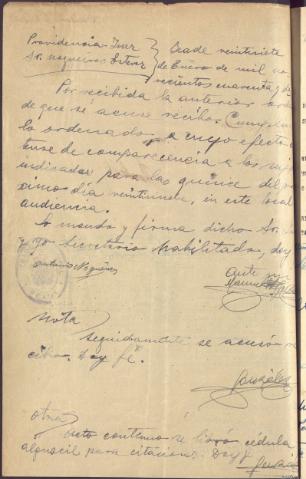 Providencia Juez } Ocade veintisiete
Sr. Nogueras } de Enero de mil no
vecientos cuarenta y
Por recibida la anterior
de que se acuse recibo. Cumpla
lo ordenado, a cuyo efecto
tense de comparecencia a los
indicados para las quince del
ximo día veintinueve, en este local
audiencia.
Lo mando y firma dicho Sr.
y yo Secretario habilitado, doy
Ante mi
Nota
Seguidamente se acusó
cibo. Doy fe.
González
Otra
Acto continuo se libró cédula
alguacil para citacions. Doy f